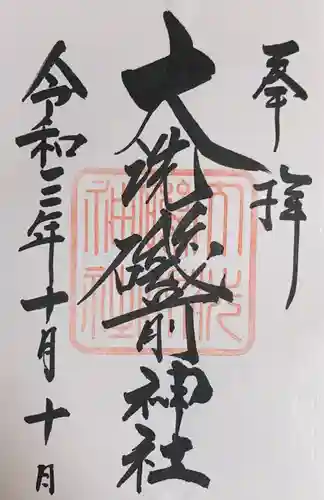 奉拝
大洗磯前神社
令和三年十月十日